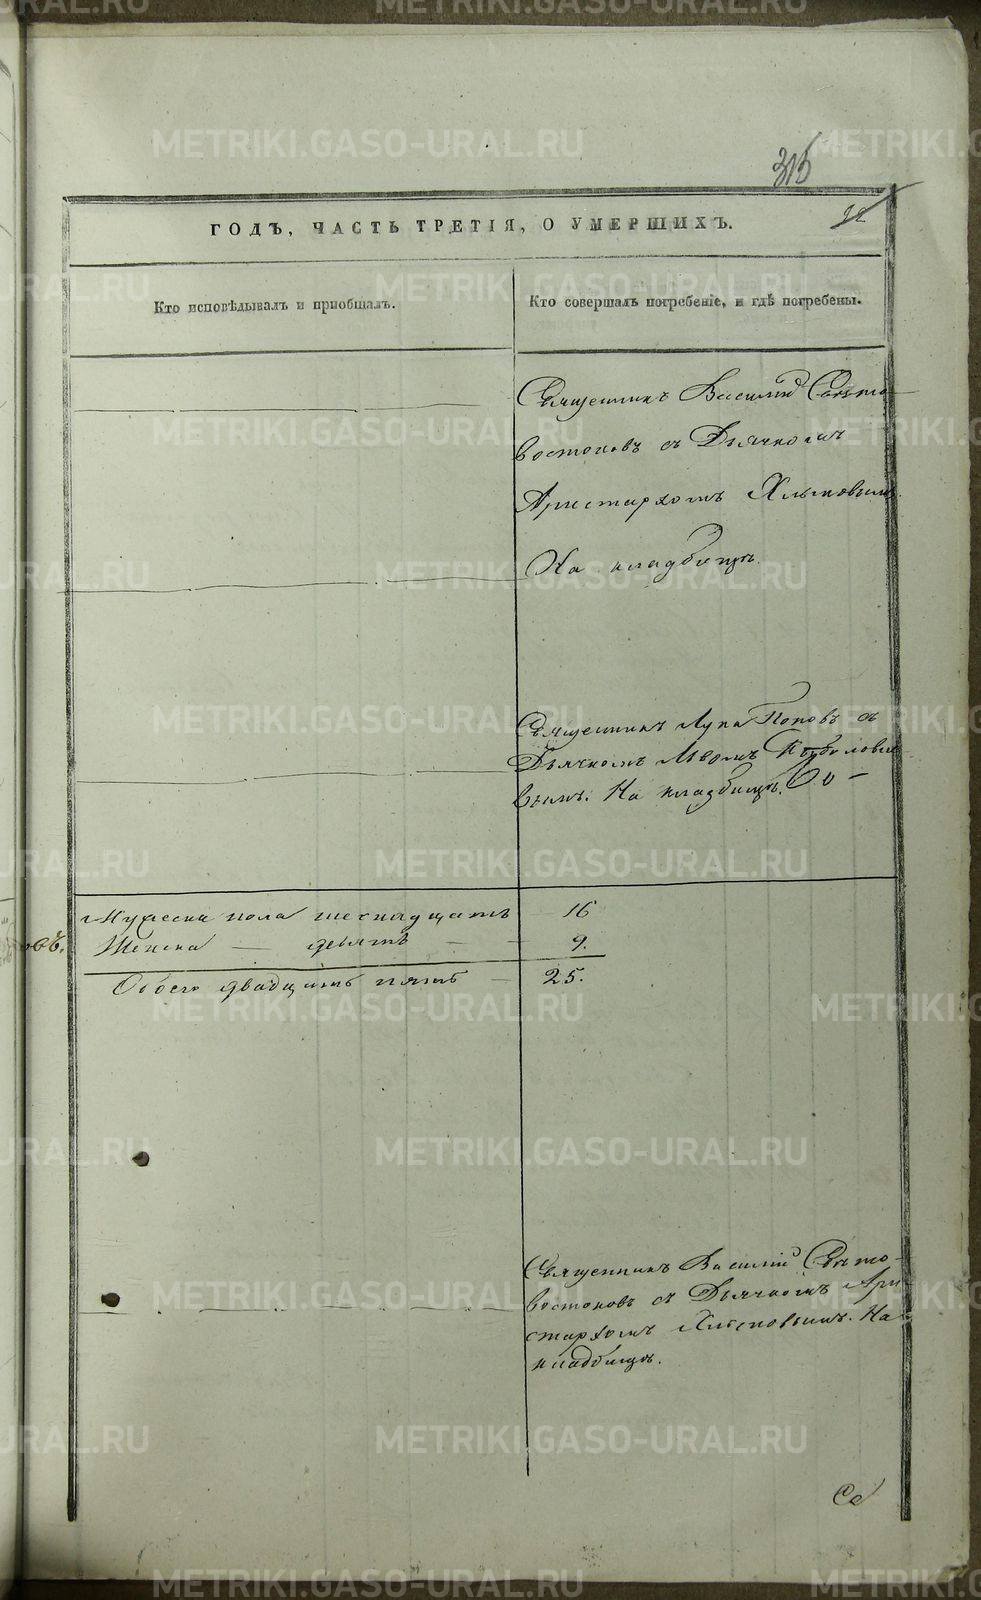 315
22
ГОДЪ, ЧАСТЬ ТРЕТІЯ, О УМЕРШИХЪ.
Кто исповѣдывалъ и пріобщалъ.
Кто совершалъ погребеніе, и гдѣ погребены.
Священникъ Василій Свѣто
востоковъ съ Дьячкомъ
Аристархомъ Хлыновымъ.
На кладбищѣ.
Священникъ Лука Поповъ съ
Дьячкомъ Львомъ
вымъ. На кладбищѣ.
Мужеска пола шеснадцать 16
Женска — девять — 9.
Обоего двадцать пять — 25.
Священникъ Василій Свѣто-
востоковъ съ Дьячкомъ Ари
стархомъ Хлыновымъ. На
кладбищѣ.
Се
METRIKI.GASO-URAL.RU